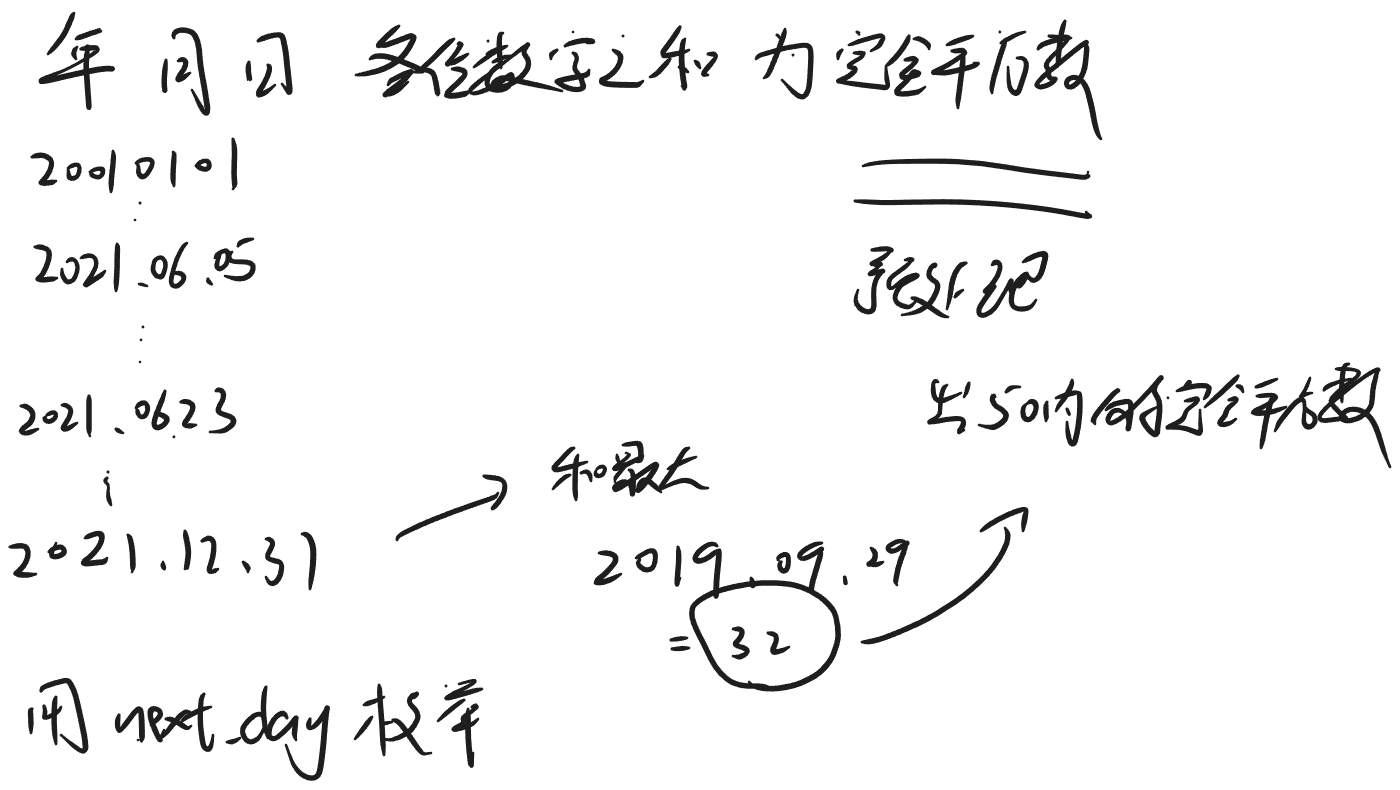 年月日 各位数字之和 为完全平方数
20010101
2021.06.05
预处理
出50内的完全平方数
2021.0623
和最大
2021.12.31
2019.09.29
=32
用next_day枚举